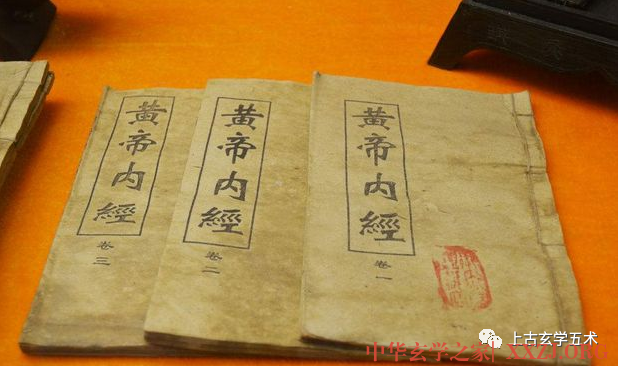 黄帝内經
卷三
黄帝内經
卷二
黄帝内經
卷一
上古玄学五术
中华玄学之家 XXZJ.ORG